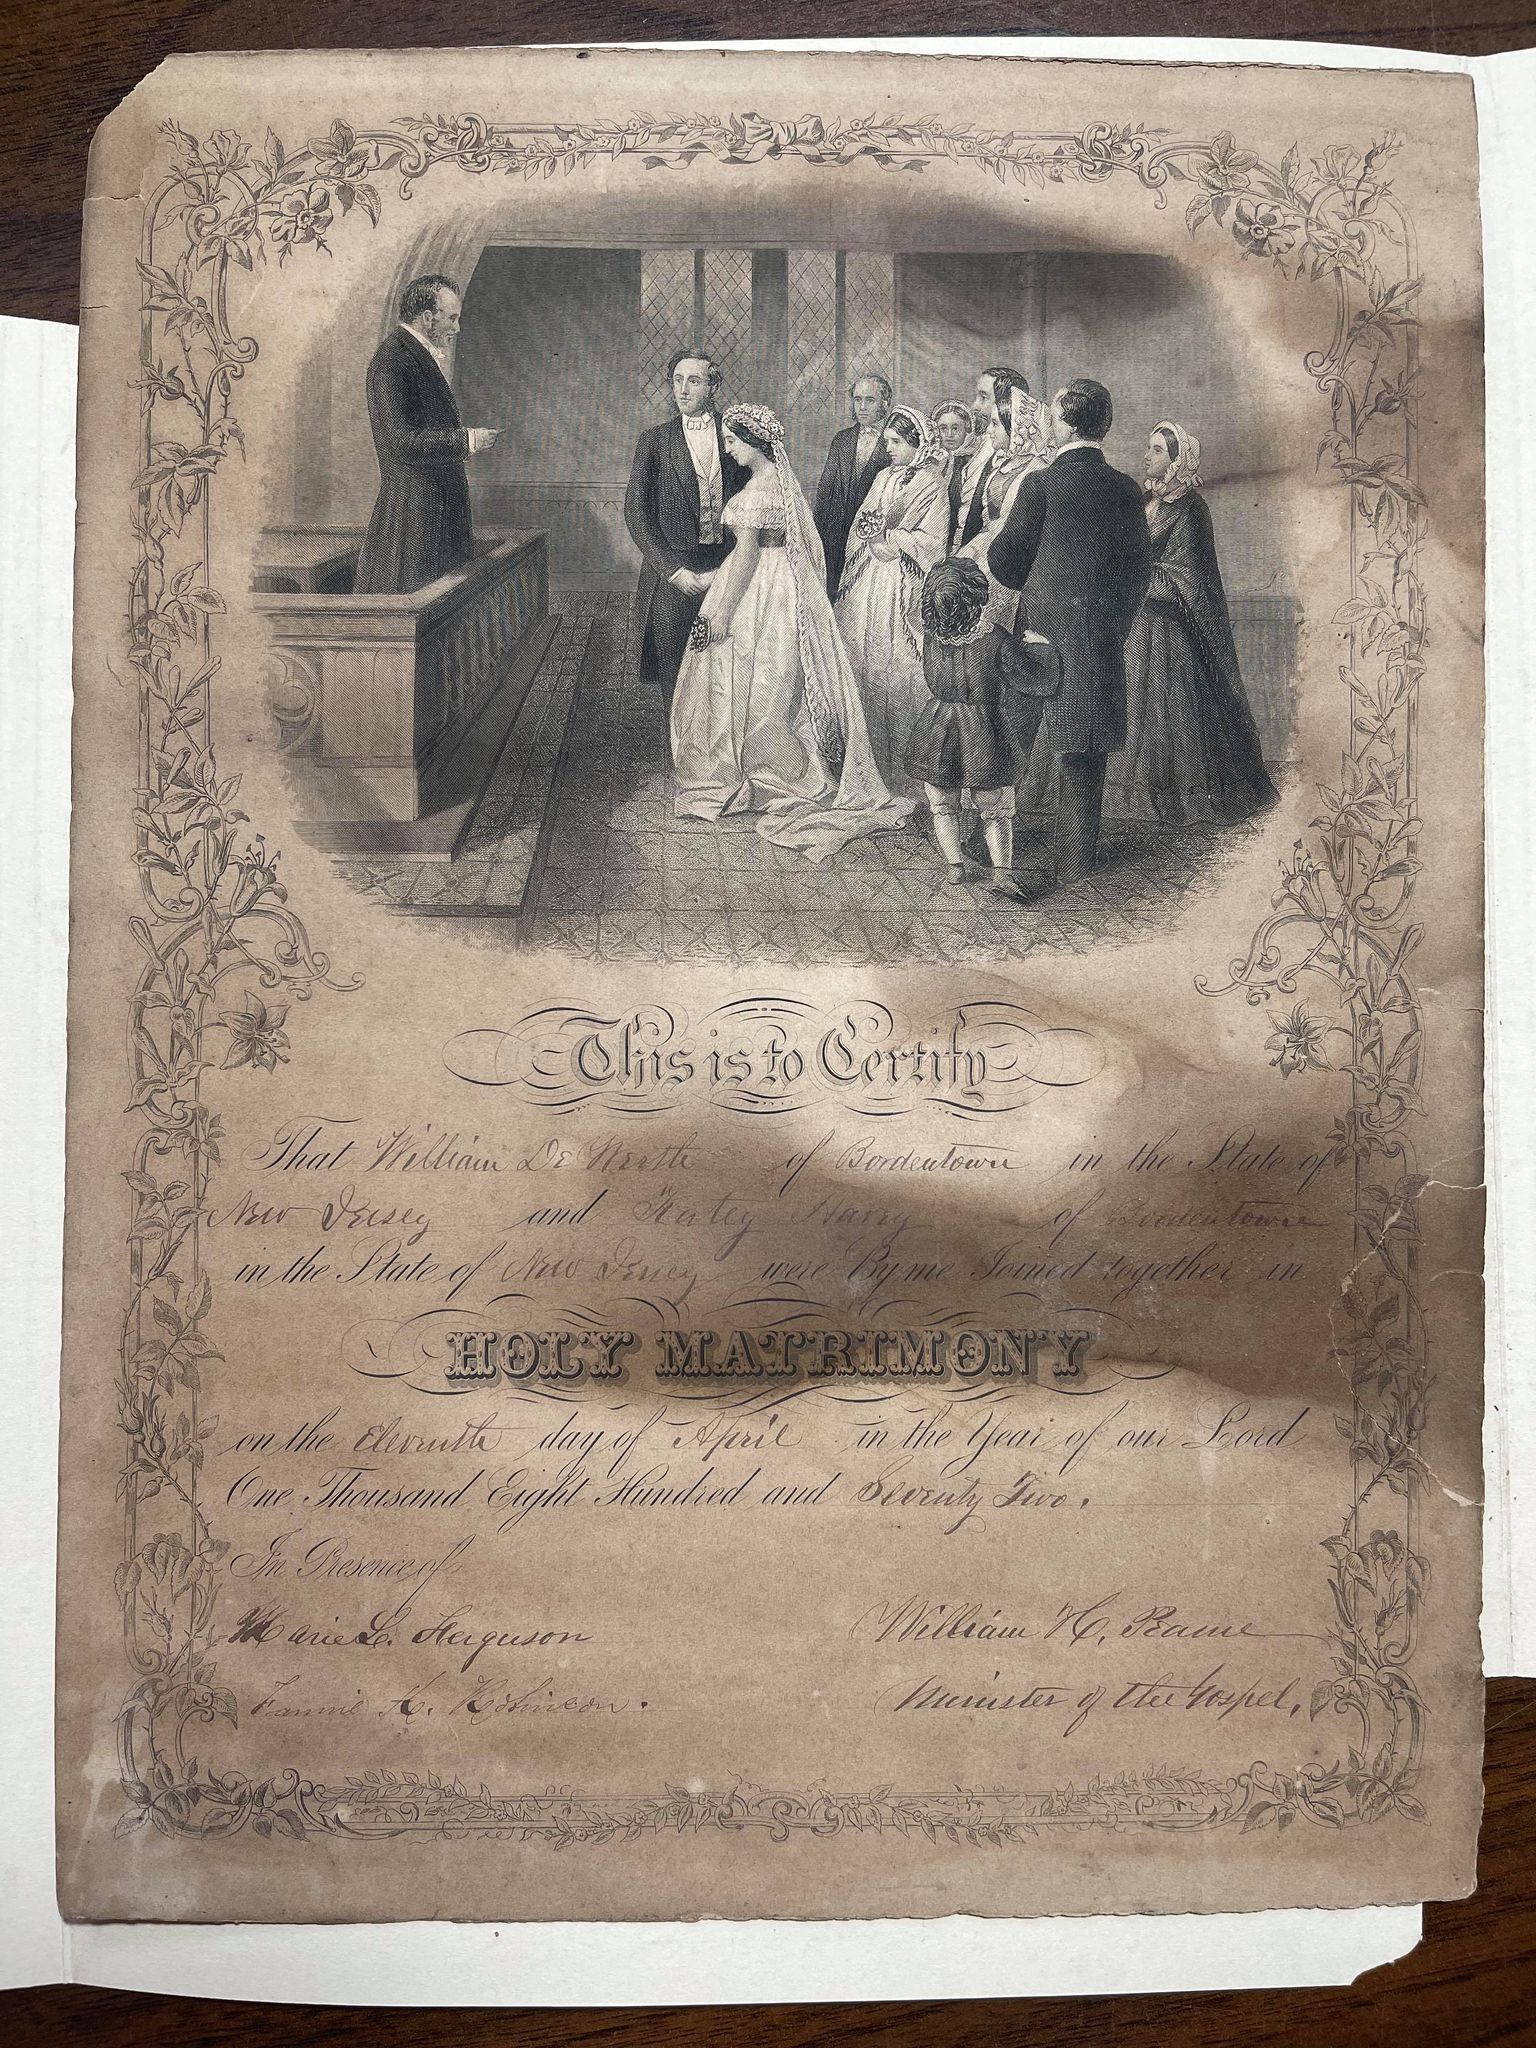 This is to Certify
That William De Nerth of Bordentown in the State of
New Jersey and Katey Harry of Bordentown
in the State of New Jersey were By me Joined together in
HOLY MATRIMONY
on the Eleventh day of April in the Year of our Lord
One Thousand Eight Hundred and Seventy Two.
In Presence of
Marie L. Ferguson
William H. Pearne
Fannie K. Robinson.
Minister of the Gospel.